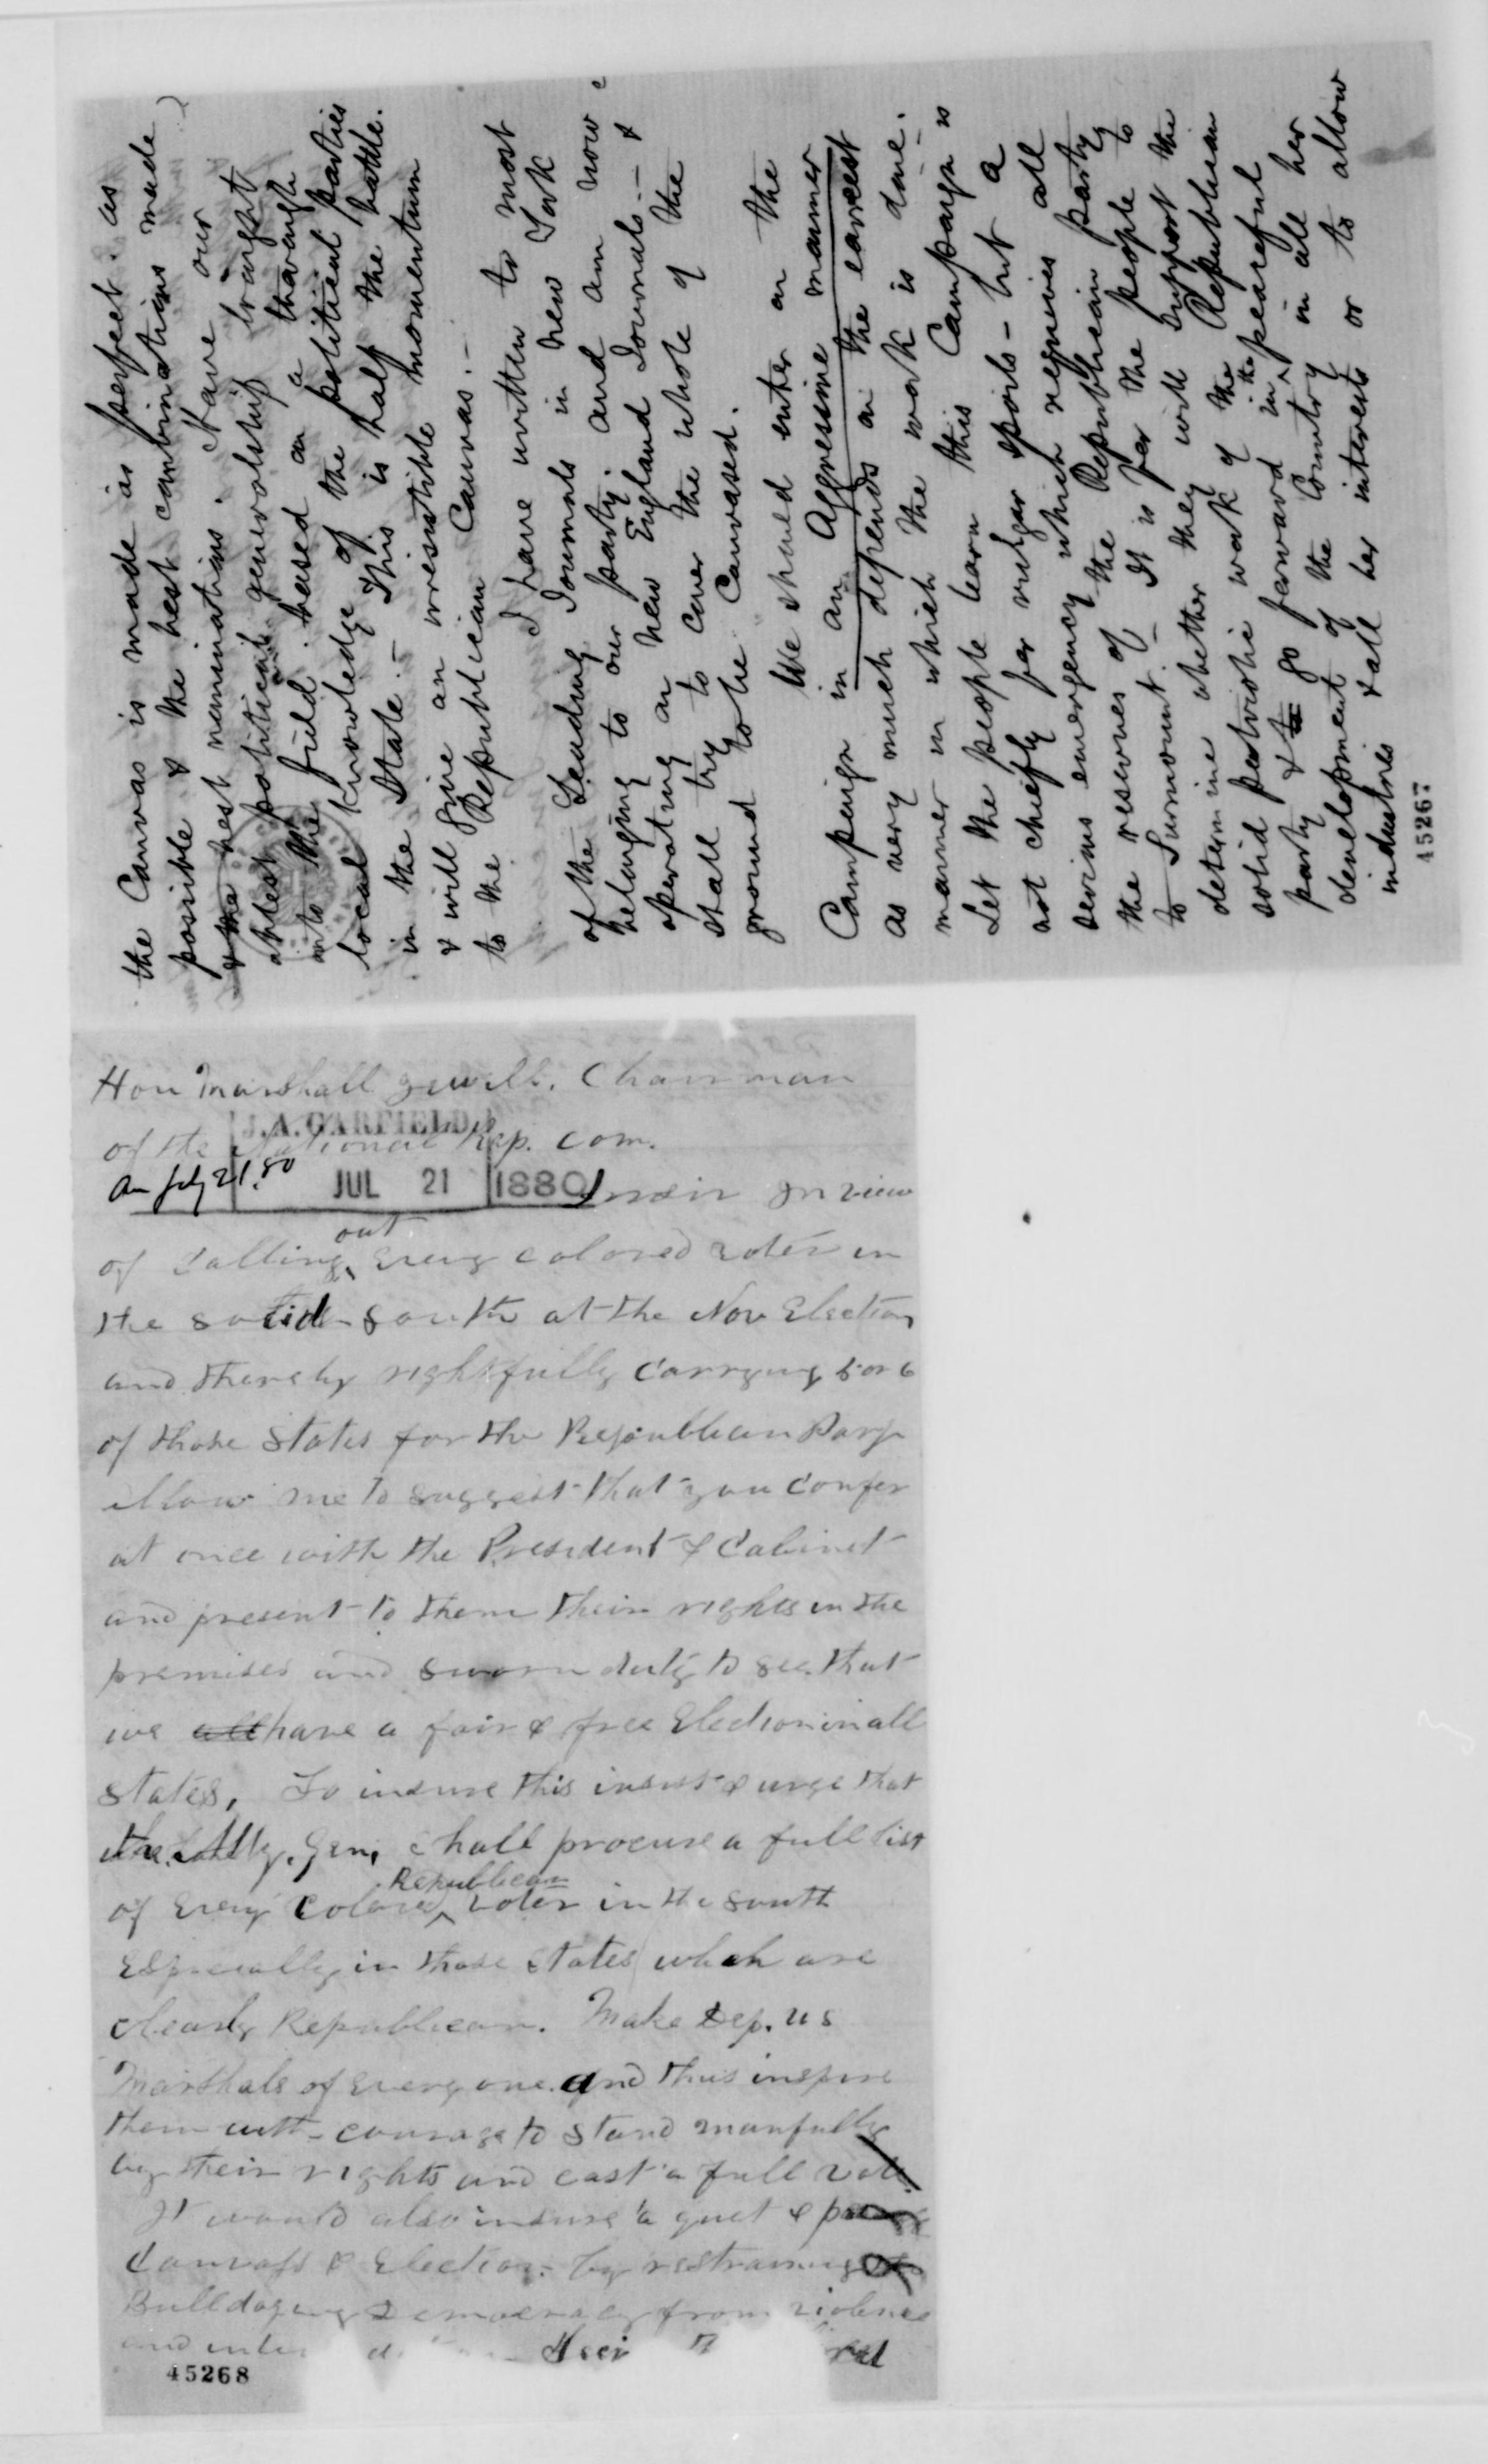 the Canvas is made as perfect as
possible & the best combinations made
& the best nominations. Have our
ablest political generalship brought
into the field. based on a thorough
local knowledge of the political parties
in the State. – This is half the battle.
& will give an irresistible momentum
to the Republican Canvas. –
I have written to most
of the Leading Journals in New York
belonging to our party. and am now
operating on New England Journals. – &
shall try to cover the whole of the
ground to be Canvased.
We should enter on the
Campaign in an Aggressine manner
as very much depends on the earnest
manner in which the work is done.
Let the people learn this Campaign is
not chiefly for vulgar spoils – but a
serious emergency which requires all
the resources of the Republican party
to Surmount. – It is for the people to
determine whether they will support the
solid patriotic work of the Republican
party & to go forward in the peaceful
development of the Country in all her
industries & all her interests or to allow
45267
Hon Marshall Jewell. Chairman
of the National Rep. Com.
J.A. GARFIELD
An July 21. 80
JUL 21 1880
Dr sir In view
of Calling out every colored voter in
the solid South at the Nov Election
and thereby rightfully carrying 5 or 6
of those States for the Republican Party
allow me to suggest that you confer
at once with the President & Cabinet
and present to them their rights in the
premises and sworn duty to see that
we all have a fair & free Election in all
States. To insure this insist & urge that
the Atty. Gen. shall procure a full list
of every Colored Republican voter in the South
Especially in those States which are
clearly Republican. Make Dep. US
Marshals of every one. And thus inspire
them with courage to stand manfully
by their rights and cast a full vote
It would also insure a quet &
Canvass & Election by restraining
Bulldozing Democracy from violence
and
45268